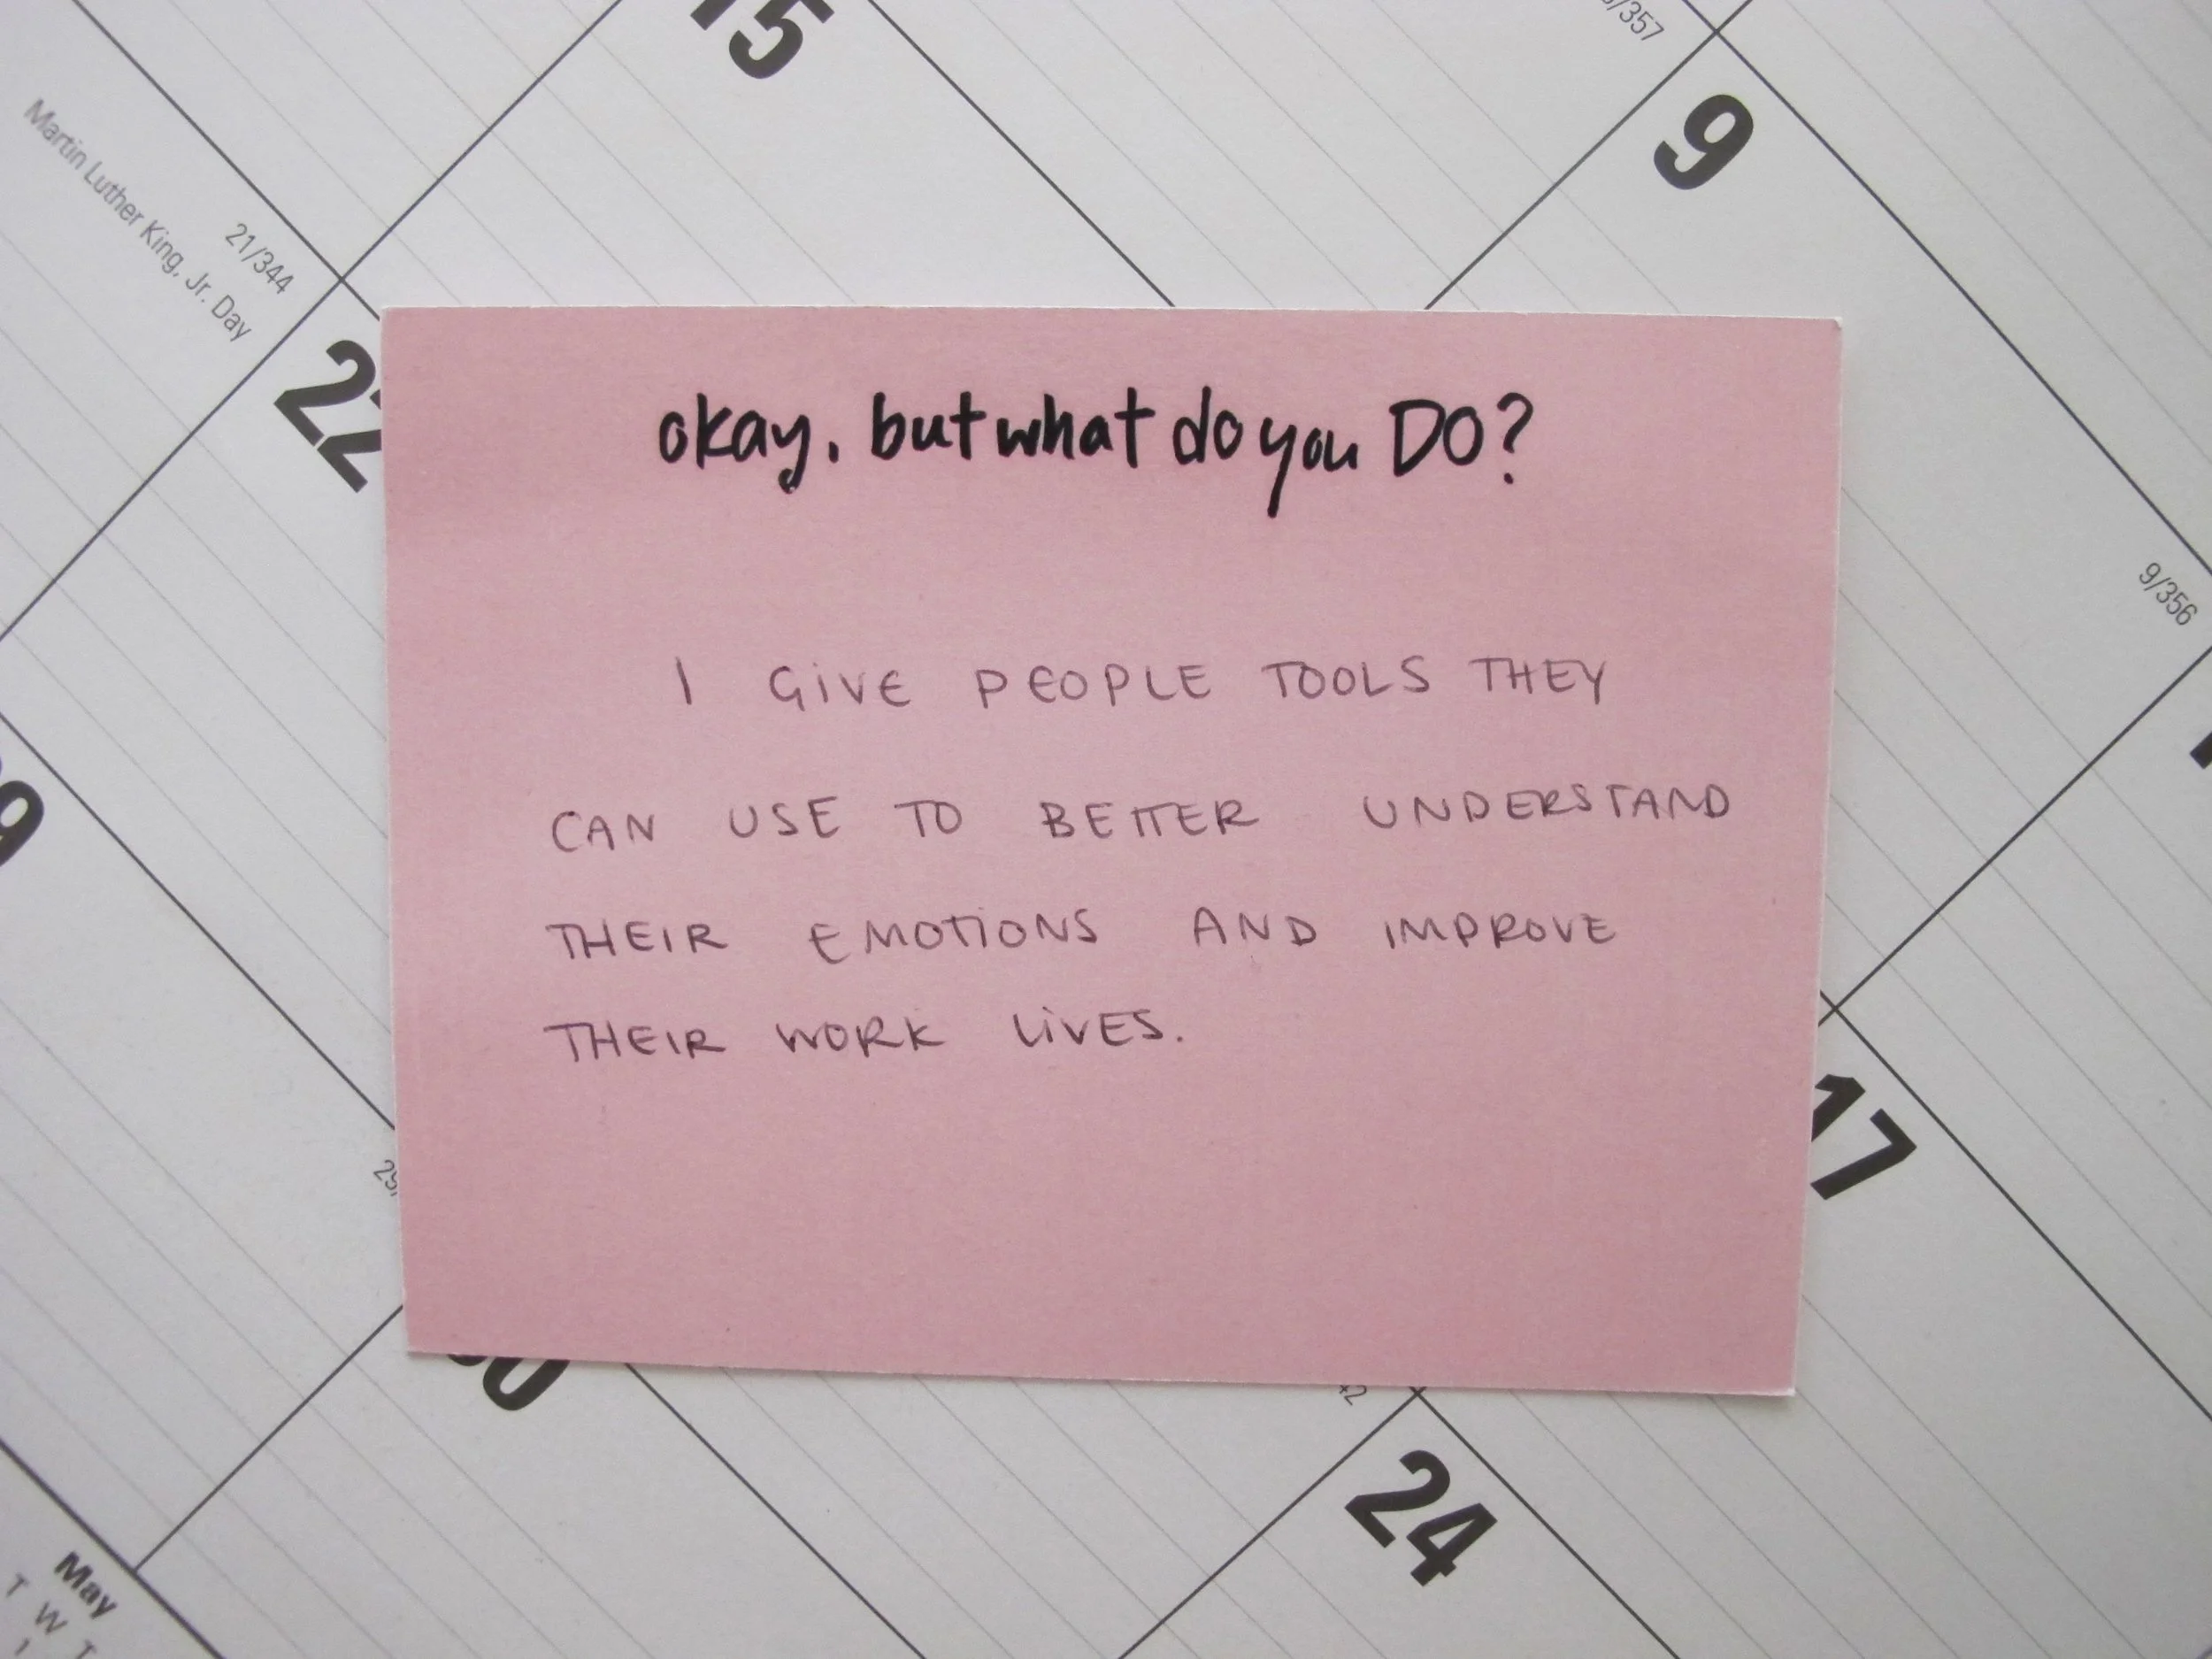 15
8/357
9
Martin Luther King, Jr. Day
21/344
22
okay, but what do you DO?
9/356
I GIVE PEOPLE TOOLS THEY
CAN USE TO BETTER UNDERSTAND
THEIR EMOTIONS AND IMPROVE
THEIR WORK LIVES.
17
24
May
T W T
1